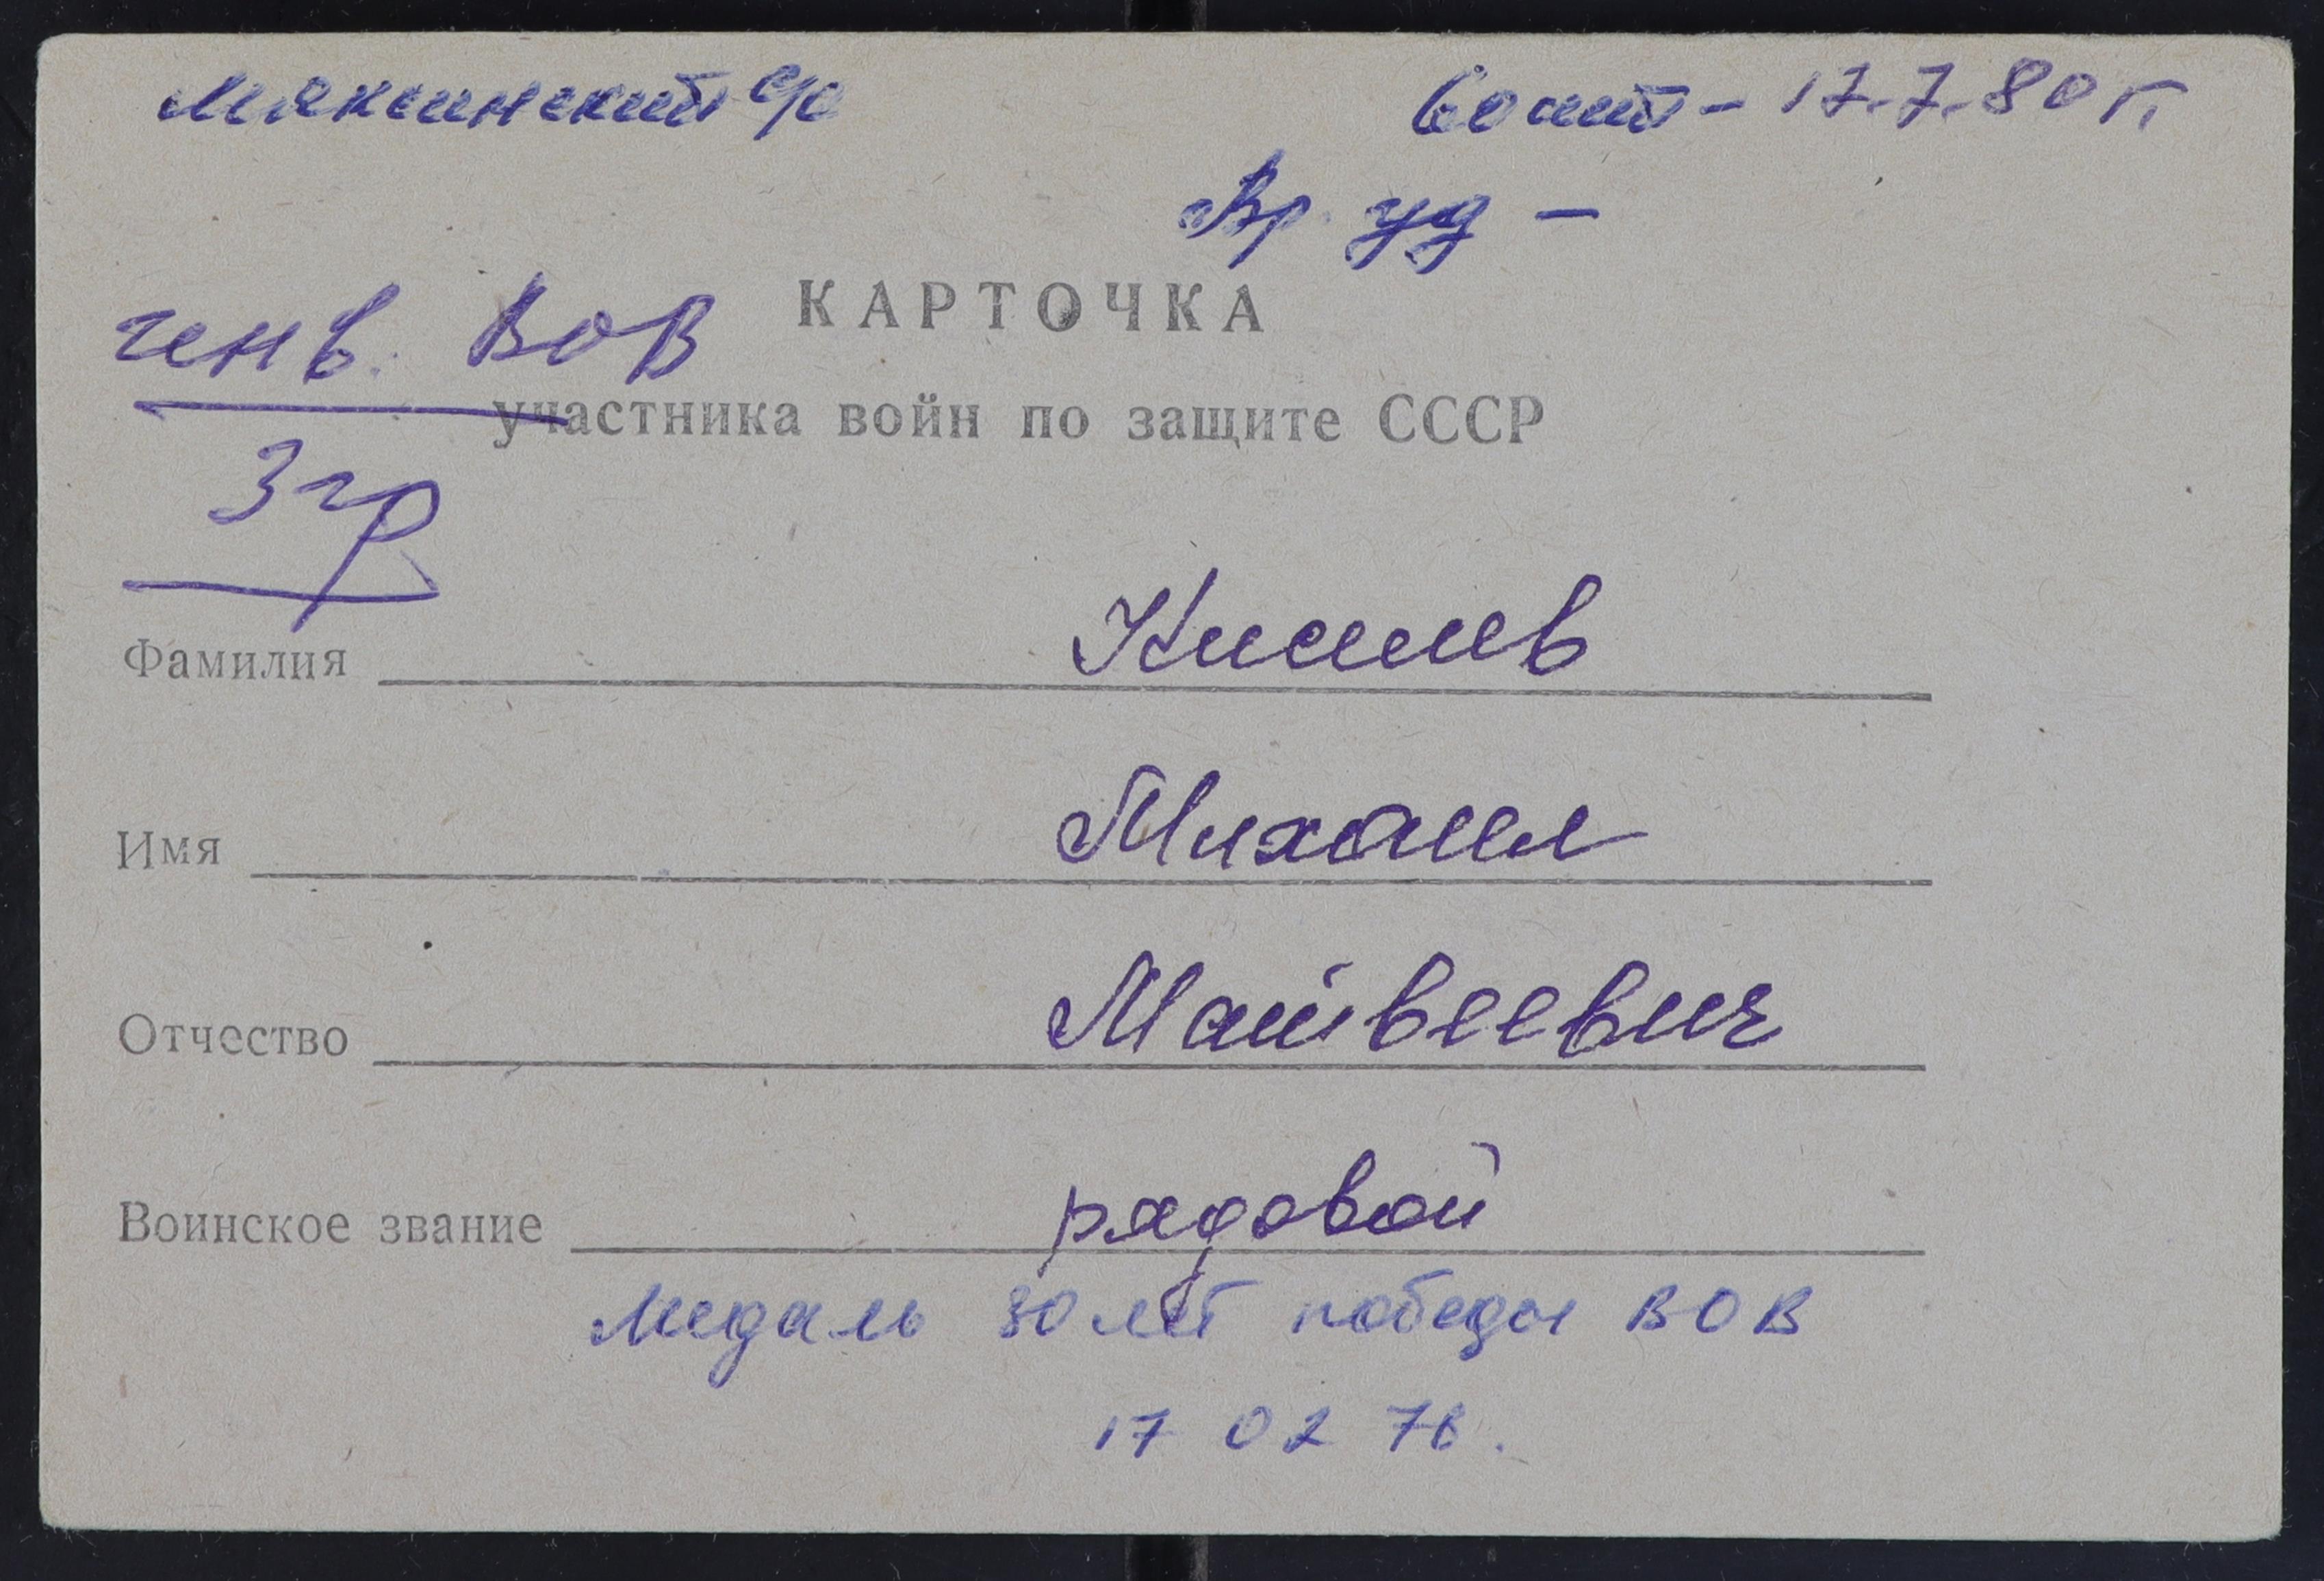 Мяксинский с/с
60 лет - 17.7.80 г.
Вр. уд -
инв. ВОВ
КАРТОЧКА
участника войн по защите СССР
3 гр
Фамилия Киселев
Имя Михаил
Отчество Матвеевич
Воинское звание рядовой
Медаль 30 лет победы ВОВ
17 02 76.